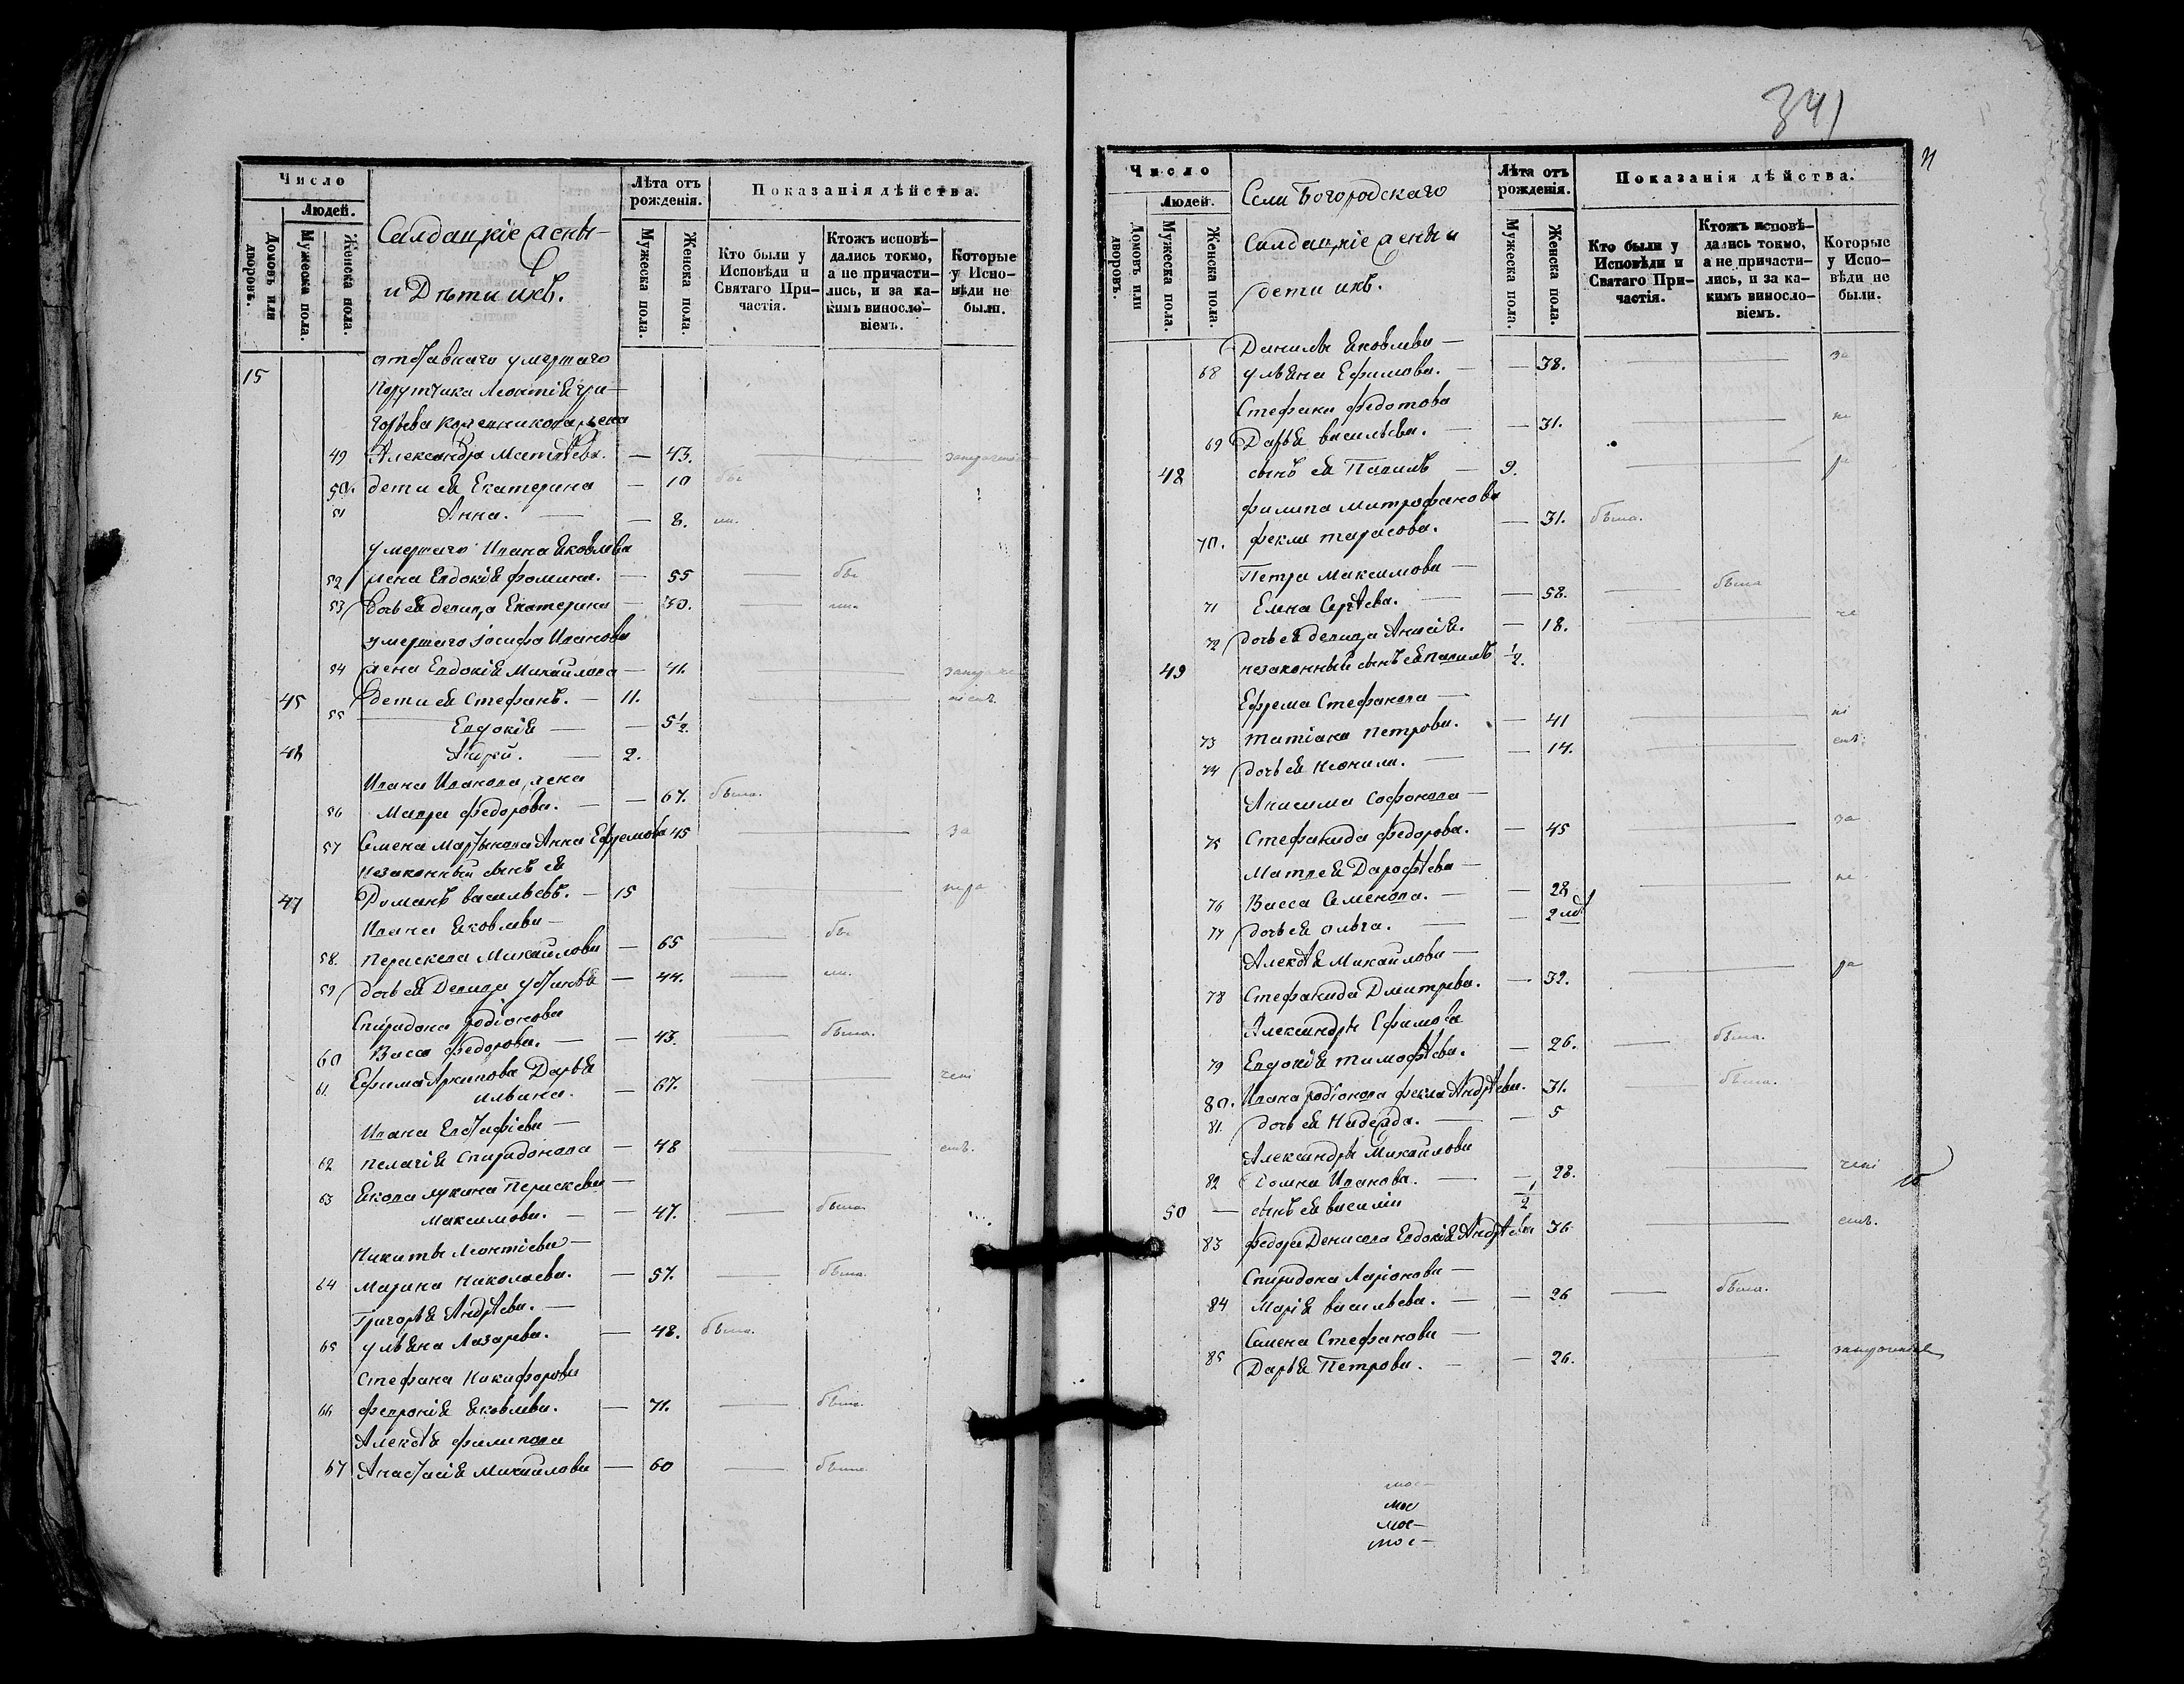 Число
Людей.
Домовъ или дворовъ.
Мужеска пола.
Женска пола.
Салдацкіе жены
и Дѣти ихъ.
Лѣта отъ рожденія.
Мужеска пола.
Женска пола.
Показанія дѣйства.
Кто были у Исповѣди и Святаго Причастія.
Ктожъ исповѣдались токмо, а не причастились, и за какимъ винословіемъ.
Которые у Исповѣди не были.
15 отставнаго умершаго
Порутчика Леонтія Гри-
горьева жена
49 Александра Матвѣева. — 43.
50. дети ея Екатерина — 10 бы
51 Анна. — 8. ли.
умершаго Ивана Яковлева
52 жена Евдокія Фомина. — 55 — бы
53 дочь ея девица Екатерина — 30. — ли.
умершаго Іосифа Иванова
54 жена Евдокія Михайлова — 41.
45 дети ея Стефанъ. — 11.
55 Евдокія — 5 1/2
46 Андрей. — 2.
Ивана Иванова жена
56 Мавра Федорова. — 67. была.
57 Семена Мартынова Анна Ефремова 45 — за
незаконный сынъ ея
47 Романъ Васильевъ. — 15
Ивана Яковлева —
58. Параскева Михайлова — 65 — бы
59 дочь ея Девица Устинья — 44. — ли.
Спиридона Родіонова
60 Васса Федорова. — 43. — была.
61. Ефима Архипова Дарья
Ильина. — 67.
Ивана Евстафіева —
62 Пелагія Спиридонова — 48 — емъ.
63 Якова Лукина Параскева —
Максимова. — 47. — была.
Никиты Леонтіева —
64 Марина Николаева. — 57. — была.
Григорья Андрѣева. —
65 Ульяна Лазарева. — 48. была.
Стефана Никифорова
66 Февронія Яковлева. — 71. — была.
Алексѣя Филипова
67 Анастасія Михайлова — 60 — была.
341
Число
Людей.
Домовъ или дворовъ.
Мужеска пола.
Женска пола.
Села Богородскаго
Салдацкіе жены и
дети ихъ.
Лѣта отъ рожденія.
Мужеска пола.
Женска пола.
Показанія дѣйства.
Кто были у Исповѣди и Святаго Причастія.
Ктожъ исповѣдались токмо, а не причастились, и за какимъ винословіемъ.
Которые у Исповѣди не были.
Данилы Яковлева —
68 Ульяна Ефимова. — 38. — за
Стефана Федотова
69 Дарья Васильева. — 31. — не
48 сынъ ея Павилъ — 9. — ра
Филипа Митрофанова
70. Фекла Тарасова. — 31. была.
Петра Максимова —
71 Елена Сергѣева. — 58. — была
72 дочь ея девица Анисія. — 18. — че
49 незаконный сынъ ея Павилъ 1/2.
Ефрема Стефанова —
73 Татіана Петрова. — 41 — ні
74 дочь ея Неонила. — 14. — емъ.
Анисима Софонова —
75 Стефанида Федорова. — 45 — за
Матвея Дарофѣева —
76 Васса Семенова. — 28 — не
77 дочь ея Ольга. — 2
Алексѣя Михайлова —
78 Стефанида Дмитрева. — 32. — ра
Александра Ефимова
79 Евдокія Тимофѣева. — 26. — была.
80. Ивана Родіонова Фекла Андрѣева. 31. — была.
81. дочь ея Надежда. — 5
Александра Михайлова
82 Домна Иванова. — 28. — чені
50 — сынъ ея Василій 1/2
83 Федора Денисова Евдокія Андрѣева 36 — емъ.
Спиридона Ларіонова —
84 Марія Васильева. — 26 — была.
Симена Стефанова —
85 Дарья Петрова. — 26.
мос-
мос
мос-
мос-